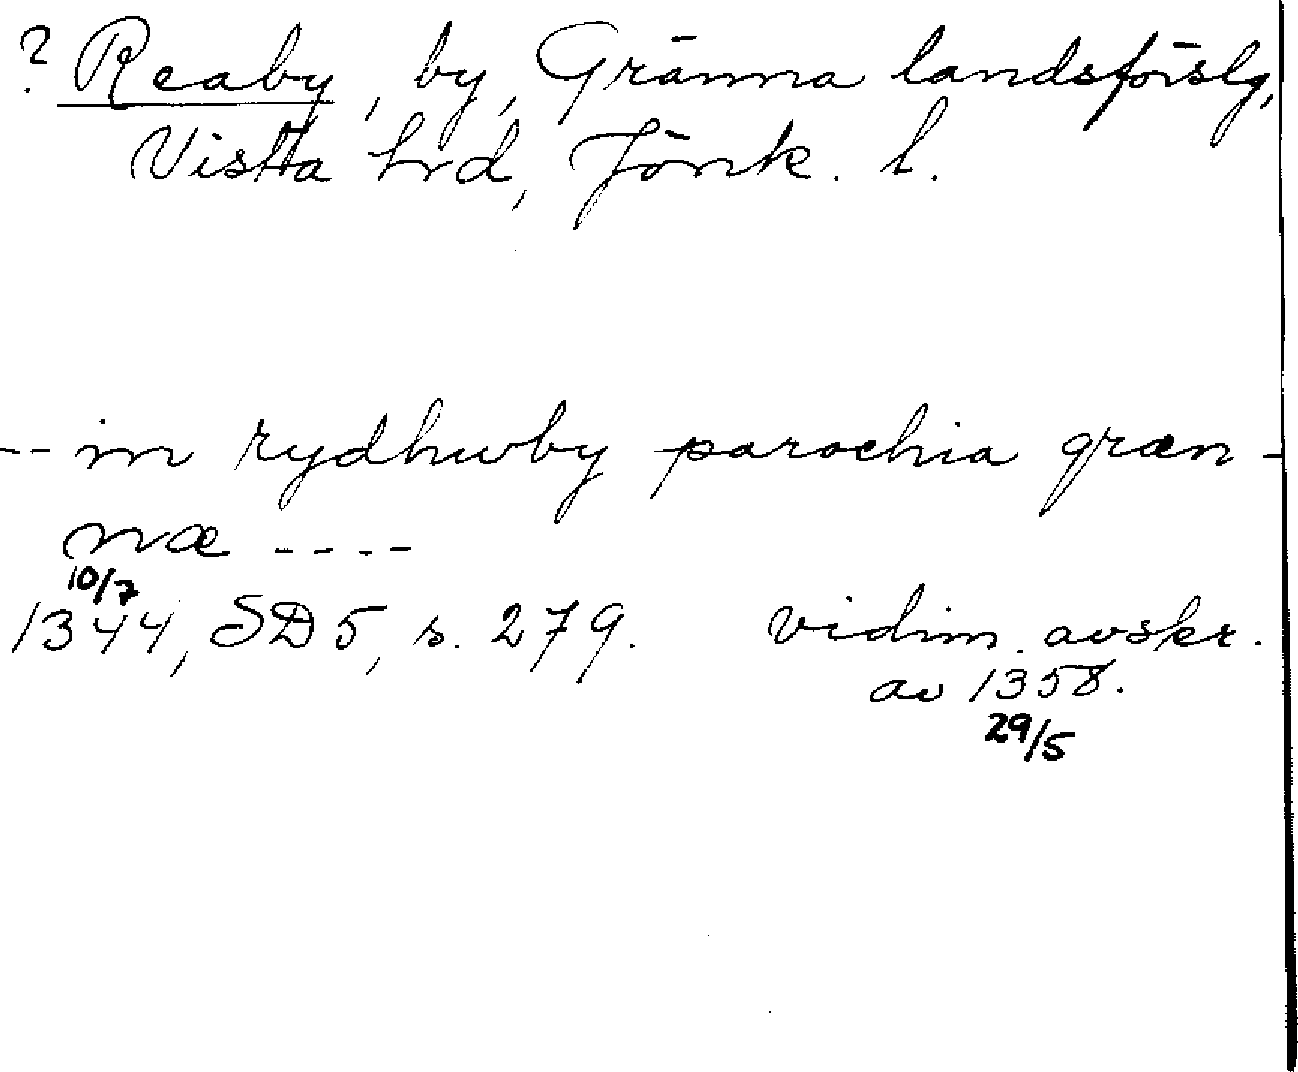 ? Reaby, by, Gränna landsförslg,
Vista hrd, Jönk. l.
-- in rydhwby parochia græn-
næ ----
10/7
1344, SD 5, s. 279. vidim. avskr.
av 1358.
29/5